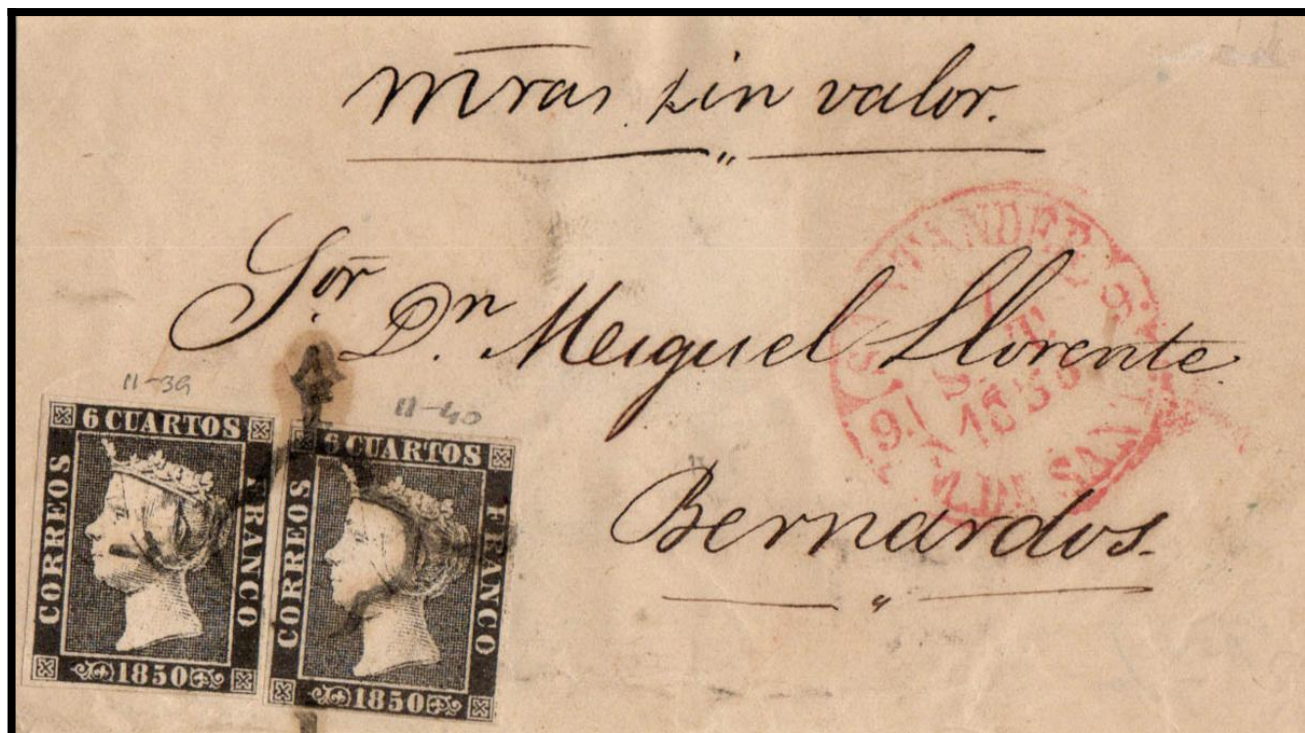 m̄ras sin valor.
Sor
Dn. Meiguel Llorente
Bernardos.
SANTANDER
9 9
1
SET.
1850
DE SAN
11-39
6 CUARTOS
CORREOS
FRANCO
1850
11-40
6 CUARTOS
CORREOS
FRANCO
1850